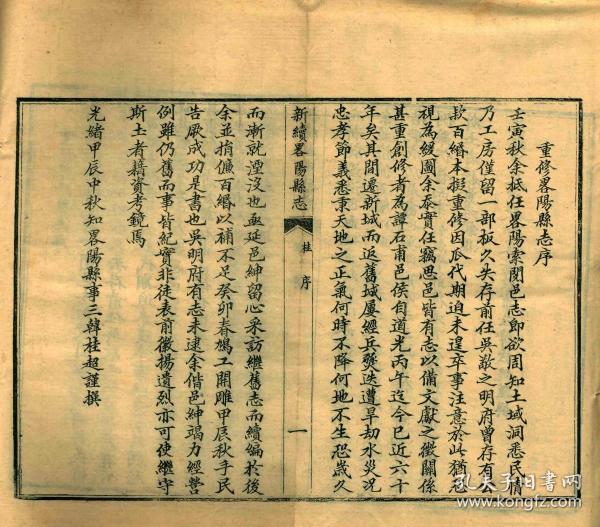 重修畧陽縣志序
壬寅秋余抵任畧陽索閱邑志即欲周知土域洞悉民情
乃工房僅留一部板久失存前任吳敬之明府曾存有
欵百緡本擬重修因瓜代期迫未遑卒事注意於此猶忽
視為緩圖余忝實任竊思邑皆有志以備文獻之徵關係
甚重創修者為譚石甫邑侯自道光丙午迄今已近六十
年矣其間遷新城而返舊城屢經兵燹迭遭旱刧水災况
忠孝節義悉秉天地之正氣何時不降何地不生恐歲久
新續畧陽縣志
桂序
一
而漸就湮沒也亟延邑紳留心采訪繼舊志而續編於後
余並捐㢘百緡以補不足癸卯春鳩工開雕甲辰秋手民
告厥成功是書也吳明府有志未逮余偕邑紳竭力經營
例雖仍舊而事皆紀實非徒表前徽揚遺烈亦可使繼守
斯土者藉資考鏡焉
光緒甲辰中秋知畧陽縣事三韓桂超謹撰
孔夫子旧书网
kongfz.com